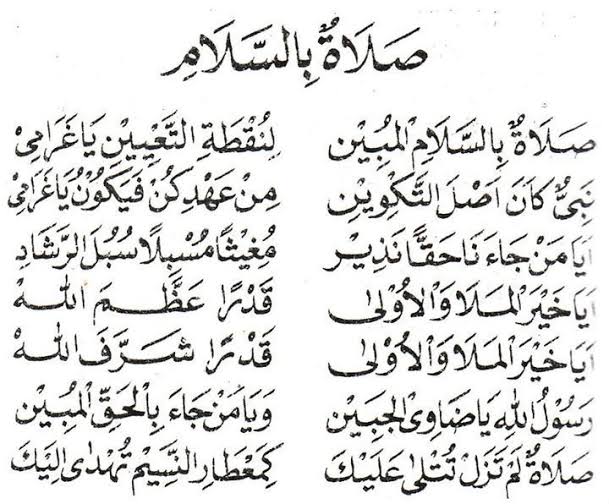 صَلَاةٌ بِالسَّلَامِ
صَلَاةٌ بِالسَّلَامِ الْمُبِيْن لِنُقْطَةِ التَّعْيِيْن يَا غَرَامِيْ
نَبِيٌّ كَانَ اَصْلَ التَّكْوِيْنِ مِنْ عَهْدِ كُنْ فَيَكُوْنُ يَا غَرَامِيْ
اَيَا مَنْ جَاءَ نَا حَقًّا نَذِيْر مُغِيْثًا مُسْبِلًا سُبُلَ الرَّشَادِ
اَيَا خَيْرَ الْمَلَا وَالْاُوْلٰى قَدْرًا عَظَّمَ اللهُ
اَيَا خَيْرَ الْمَلَا وَالْاُوْلٰى قَدْرًا شَرَّفَ اللهُ
رَسُوْلُ اللهِ يَا ضَاوِى الْجَبِيْن وَيَا مَنْ جَاءَ بِالْحَقِّ الْمُبِيْن
صَلَاةٌ لَمْ تَزَلْ تُتْلٰى عَلَيْكَ كَمِعْطَارِ النَّسِيْمِ تُهْدٰى اِلَيْكَ